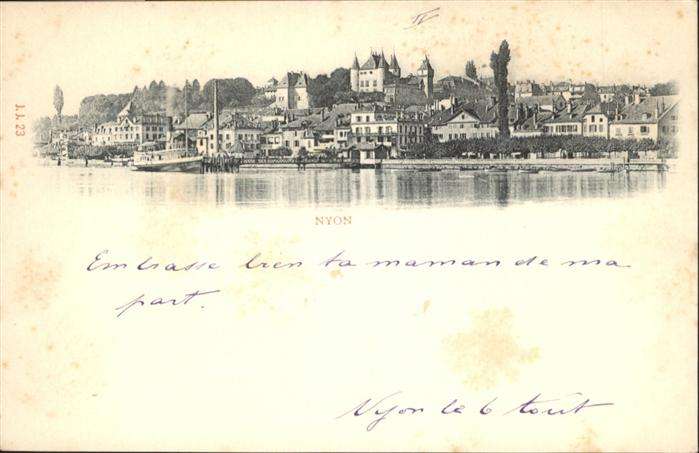 IV
J.J. 23
NYON
Embrasse bien ta maman de ma
part.
Nyon le 6 Août